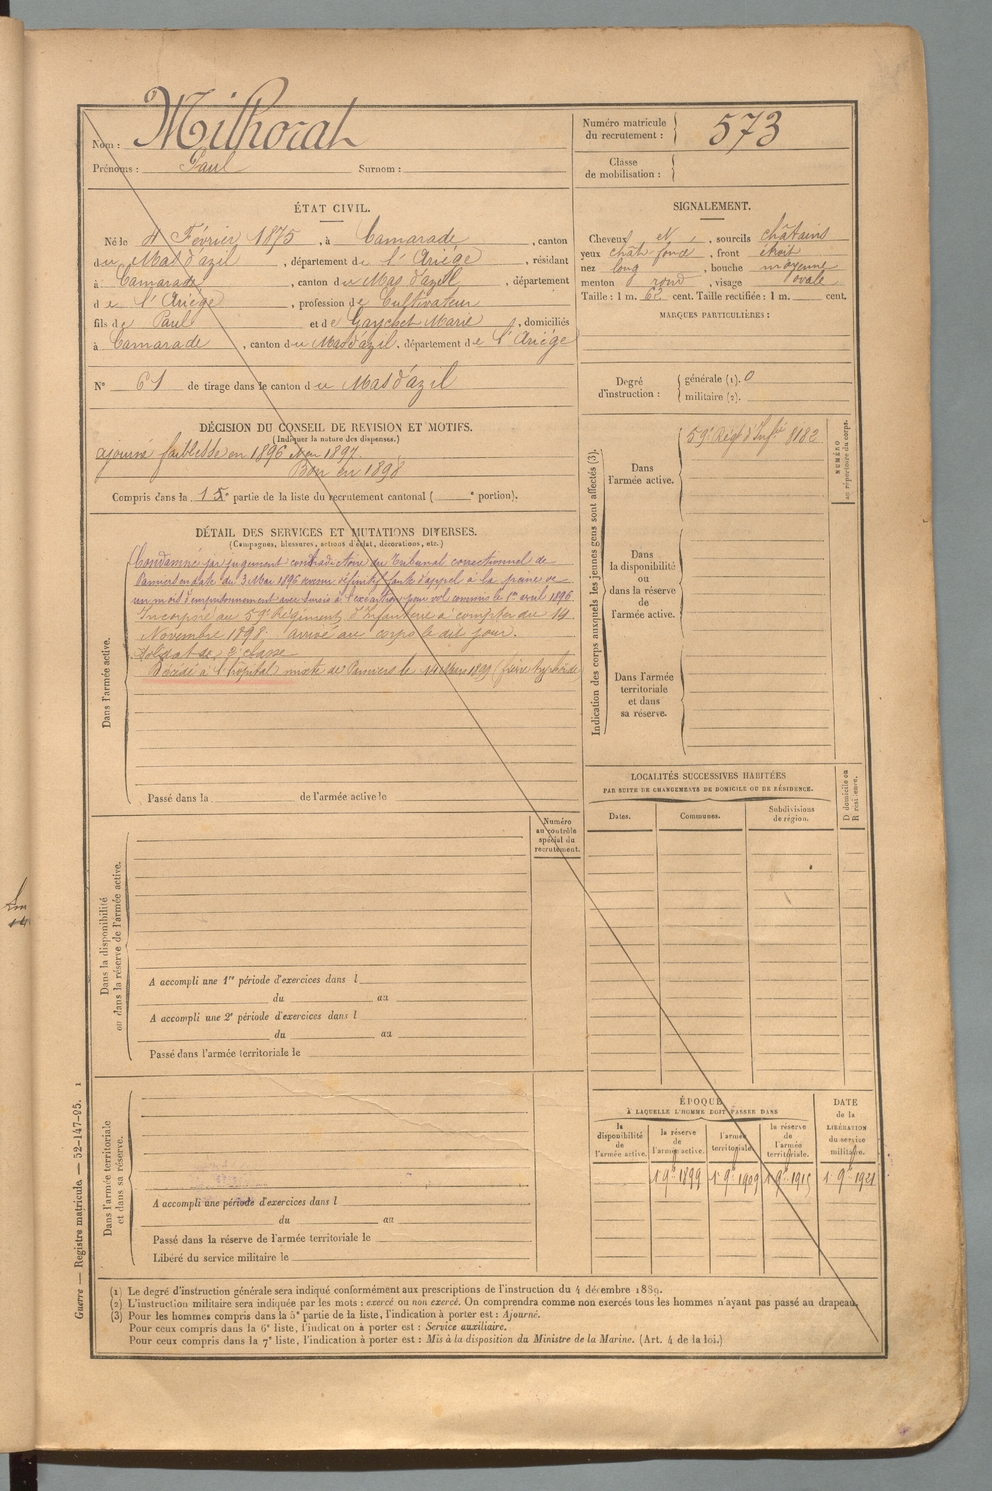 Nom : Milhorat
Prénoms : Paul Surnom :
Numéro matricule du recrutement : 573
Classe de mobilisation :
ÉTAT CIVIL.
Né le 4 Février 1875, à Camarade, canton
du Mas d'azil, département de l'Ariège, résidant
à Camarade, canton du Mas d'azil, département
de l'Ariège, profession de Cultivateur
fils de Paul et de Gaychet Marie, domiciliés
à Camarade, canton du Mas d'azil, département de l'Ariège
N° 61 de tirage dans le canton du Mas d'azil
SIGNALEMENT.
Cheveux N, sourcils châtains
yeux chât. foncé, front étroit
nez long, bouche moyenne
menton rond, visage ovale
Taille : 1 m. 62 cent. Taille rectifiée : 1 m. cent.
MARQUES PARTICULIÈRES :
Degré d'instruction : générale (1). 0
militaire (2).
DÉCISION DU CONSEIL DE REVISION ET MOTIFS.
(Indiquer la nature des dispenses.)
ajourné faiblesse en 1896 1897
Bon en 1898
Compris dans la 1e partie de la liste du recrutement cantonal ( e portion).
DÉTAIL DES SERVICES ET MUTATIONS DIVERSES.
(Campagnes, blessures, actions d'éclat, décorations, etc.)
Dans l'armée active.
Condamné par jugement contradictoire du Tribunal correctionnel de
Pamiers en date du 3 Mai 1896 devenu définitif faute d'appel à la peine de
un mois d'emprisonnement avec sursis à l'exécution pour vol commis le 1er avril 1896.
Incorporé au 59e Régiment d'Infanterie à compter du 14
Novembre 1898, arrivé au corps le dit jour.
Soldat de 2e classe
Décédé à l'hôpital mixte de Pamiers le 14 Mars 1899 (fièvre typhoïde
Passé dans la de l'armée active le
Indication des corps auxquels les jeunes gens sont affectés (3).
Dans l'armée active.
59e Régt d'Infie 8182
NUMÉRO au répertoire du corps.
Dans la disponibilité ou dans la réserve de l'armée active.
Dans l'armée territoriale et dans sa réserve.
LOCALITÉS SUCCESSIVES HABITÉES
PAR SUITE DE CHANGEMENTS DE DOMICILE OU DE RÉSIDENCE.
Dates. Communes. Subdivisions de région.
D domicile ou R résidence.
Numéro au contrôle spécial du recrutement.
Dans la disponibilité ou dans la réserve de l'armée active.
A accompli une 1re période d'exercices dans l
du au
A accompli une 2e période d'exercices dans l
du au
Passé dans l'armée territoriale le
Dans l'armée territoriale et dans sa réserve.
A accompli une période d'exercices dans l
du au
Passé dans la réserve de l'armée territoriale le
Libéré du service militaire le
ÉPOQUE
À LAQUELLE L'HOMME DOIT PASSER DANS
la disponibilité de l'armée active.
la réserve de l'armée active.
l'armée territoriale.
la réserve de l'armée territoriale.
DATE de la LIBÉRATION du service militaire.
1 9e 1899 1 9e 1909 1 9e 1915 1 9e 1921
Guerre — Registre matricule. — 52-147-95. 1
(1) Le degré d'instruction générale sera indiqué conformément aux prescriptions de l'instruction du 4 décembre 1889.
(2) L'instruction militaire sera indiquée par les mots : exercé ou non exercé. On comprendra comme non exercés tous les hommes n'ayant pas passé au drapeau.
(3) Pour les hommes compris dans la 5e partie de la liste, l'indication à porter est : Ajourné.
Pour ceux compris dans la 6e liste, l'indication à porter est : Service auxiliaire.
Pour ceux compris dans la 7e liste, l'indication à porter est : Mis à la disposition du Ministre de la Marine. (Art. 4 de la loi.)